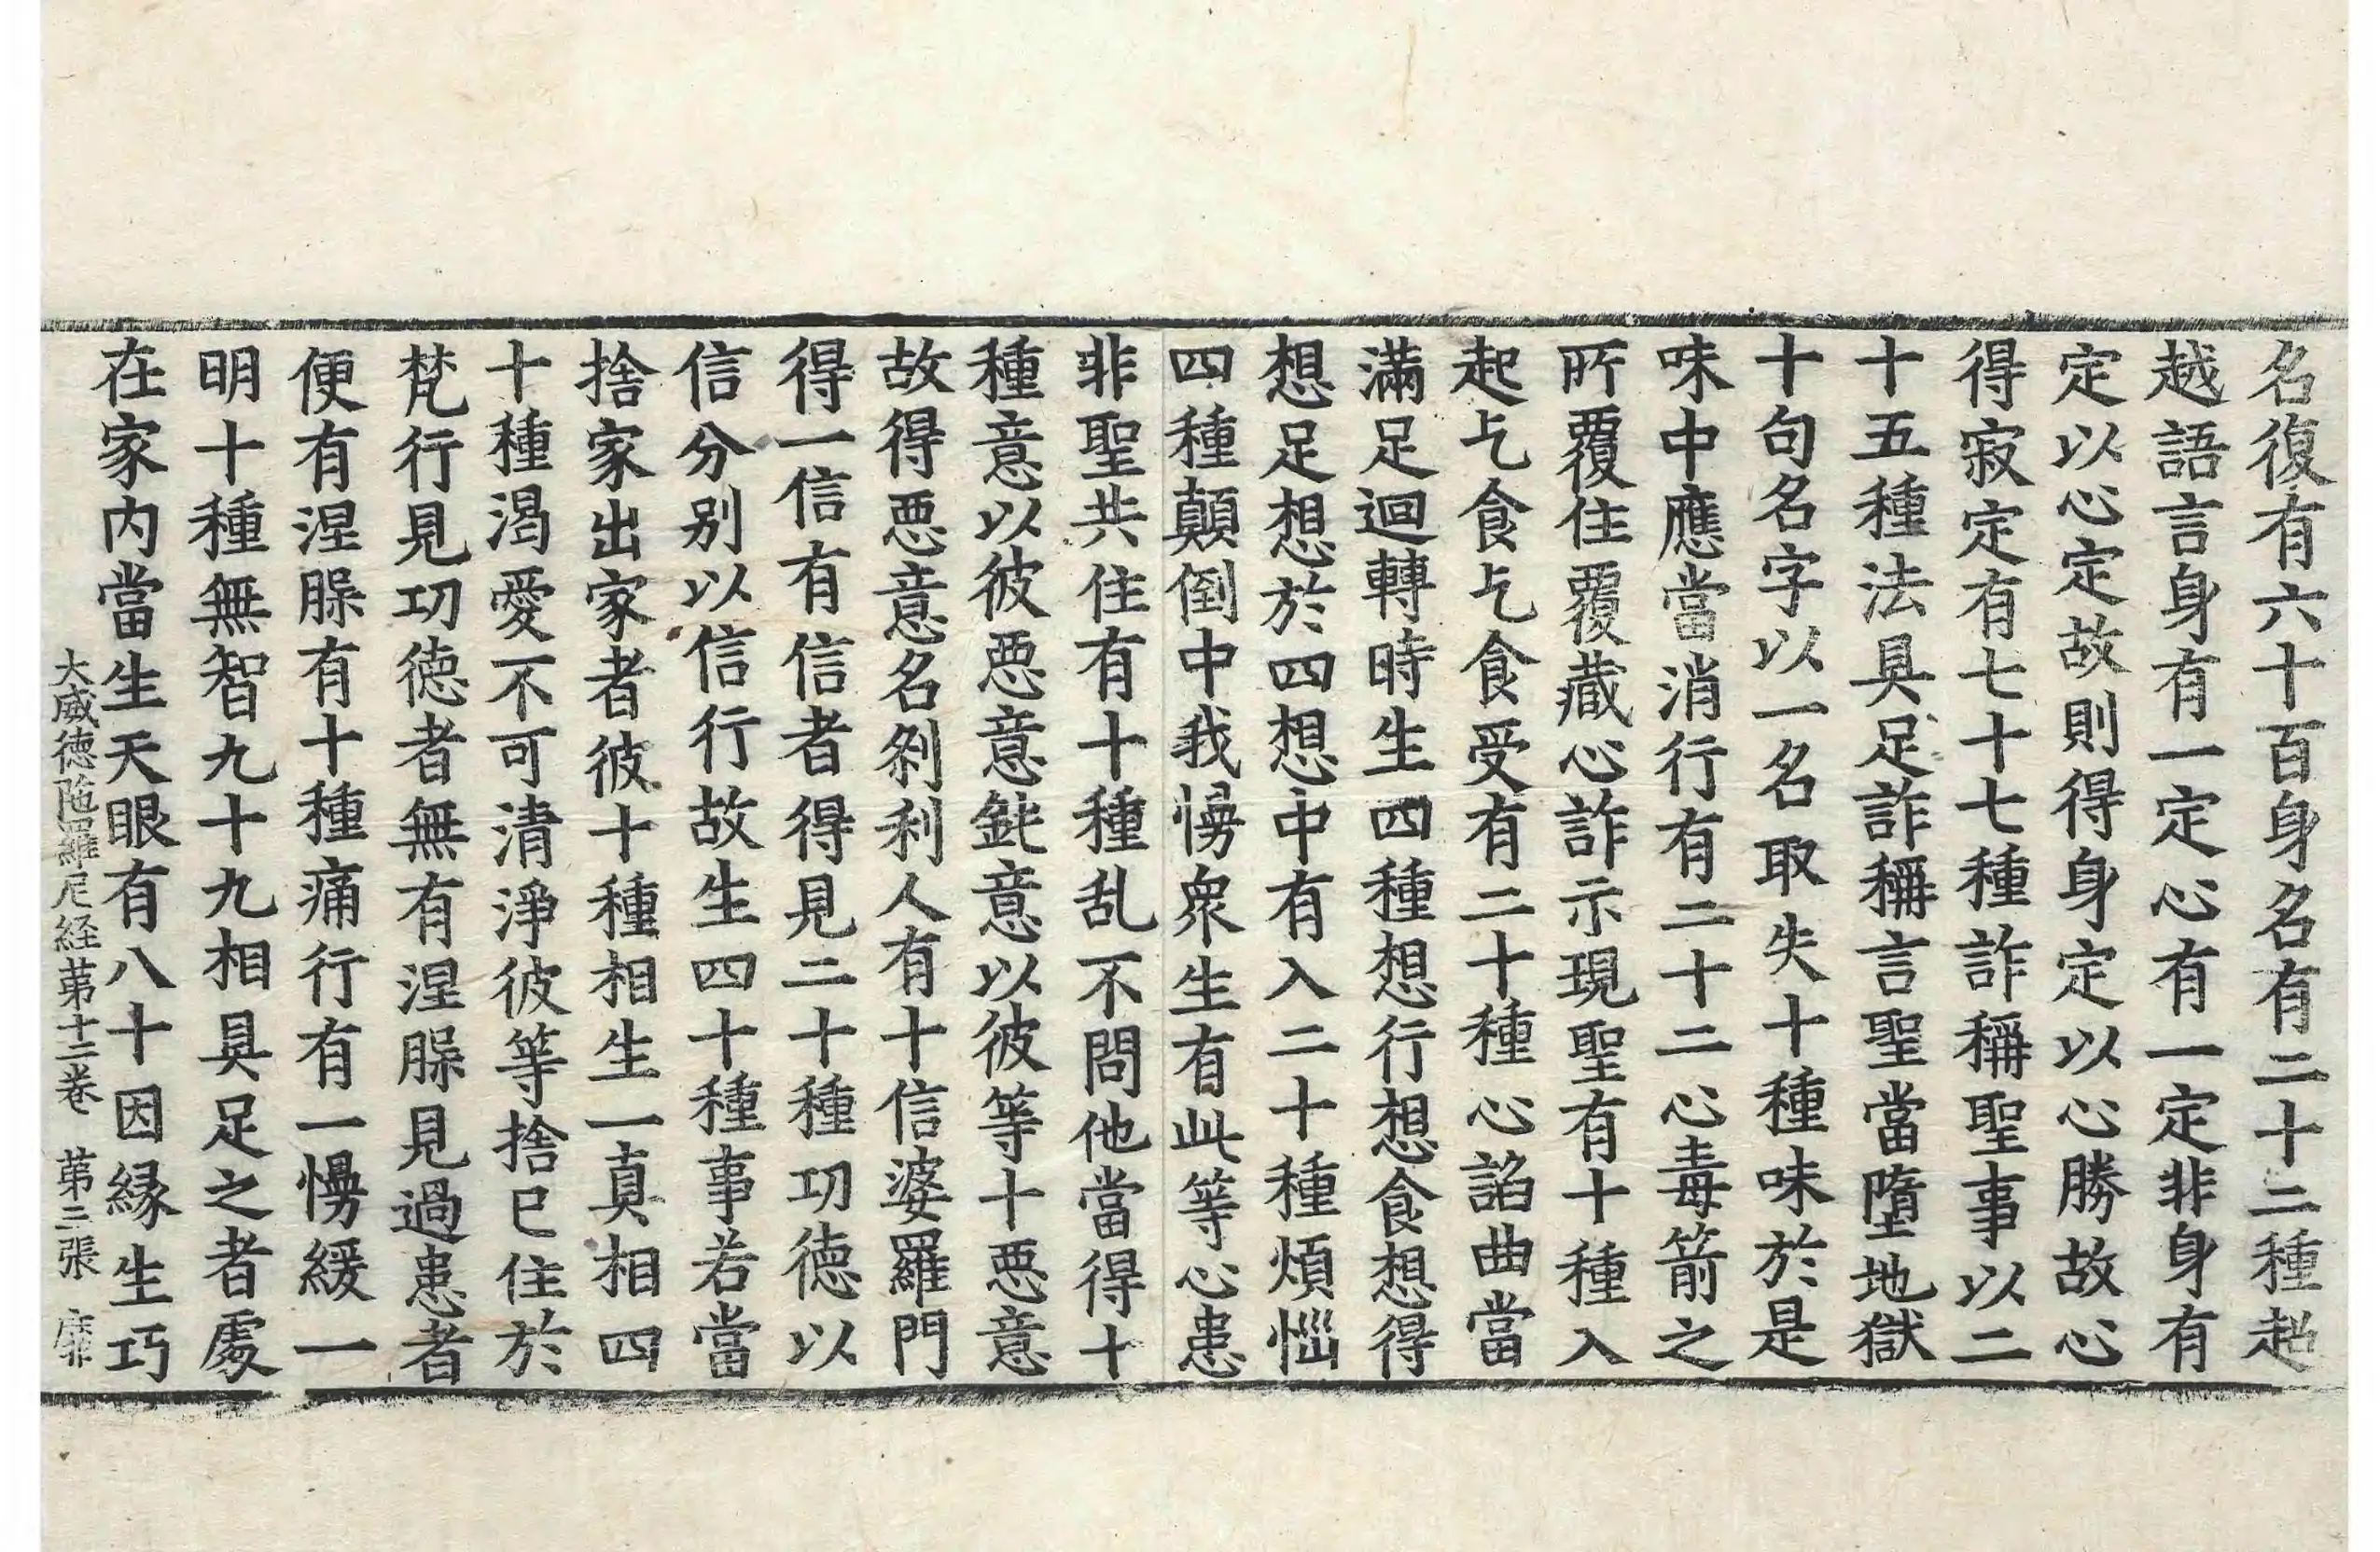 名復有六十百身名有二十二種超
越語言身有一定心有一定非身有
定以心定故則得身定以心勝故心
得寂定有七十七種詐稱聖事以二
十五種法具足詐稱言聖當墮地獄
十句名字以一名取失十種味於是
味中應當消行有二十二心毒箭之
所覆住覆蔵心詐示現聖有十種入
起乞食乞食受有二十種心諂曲當
滿足迴轉時生四種想行想食想得
想足想於四想中有入二十種煩惱
四種顛倒中我慢衆生有此等心患
非聖共住有十種乱不問他當得十
種意以彼惡意鈍意以彼等十惡意
故得惡意名刹利人有十信婆羅門
得一信有信者得見二十種功徳以
信分別以信行故生四十種事若當
捨家出家者彼十種相生一真相四
十種渴愛不可清淨彼等捨已住於
梵行見功徳者無有涅縣見過患者
便有涅縣有十種痛行有一慢緩一
明十種無智九十九相具足之者處
在家内當生天眼有八十因縁生巧
大威徳陁羅尼経苐十二巻 苐三張 靡